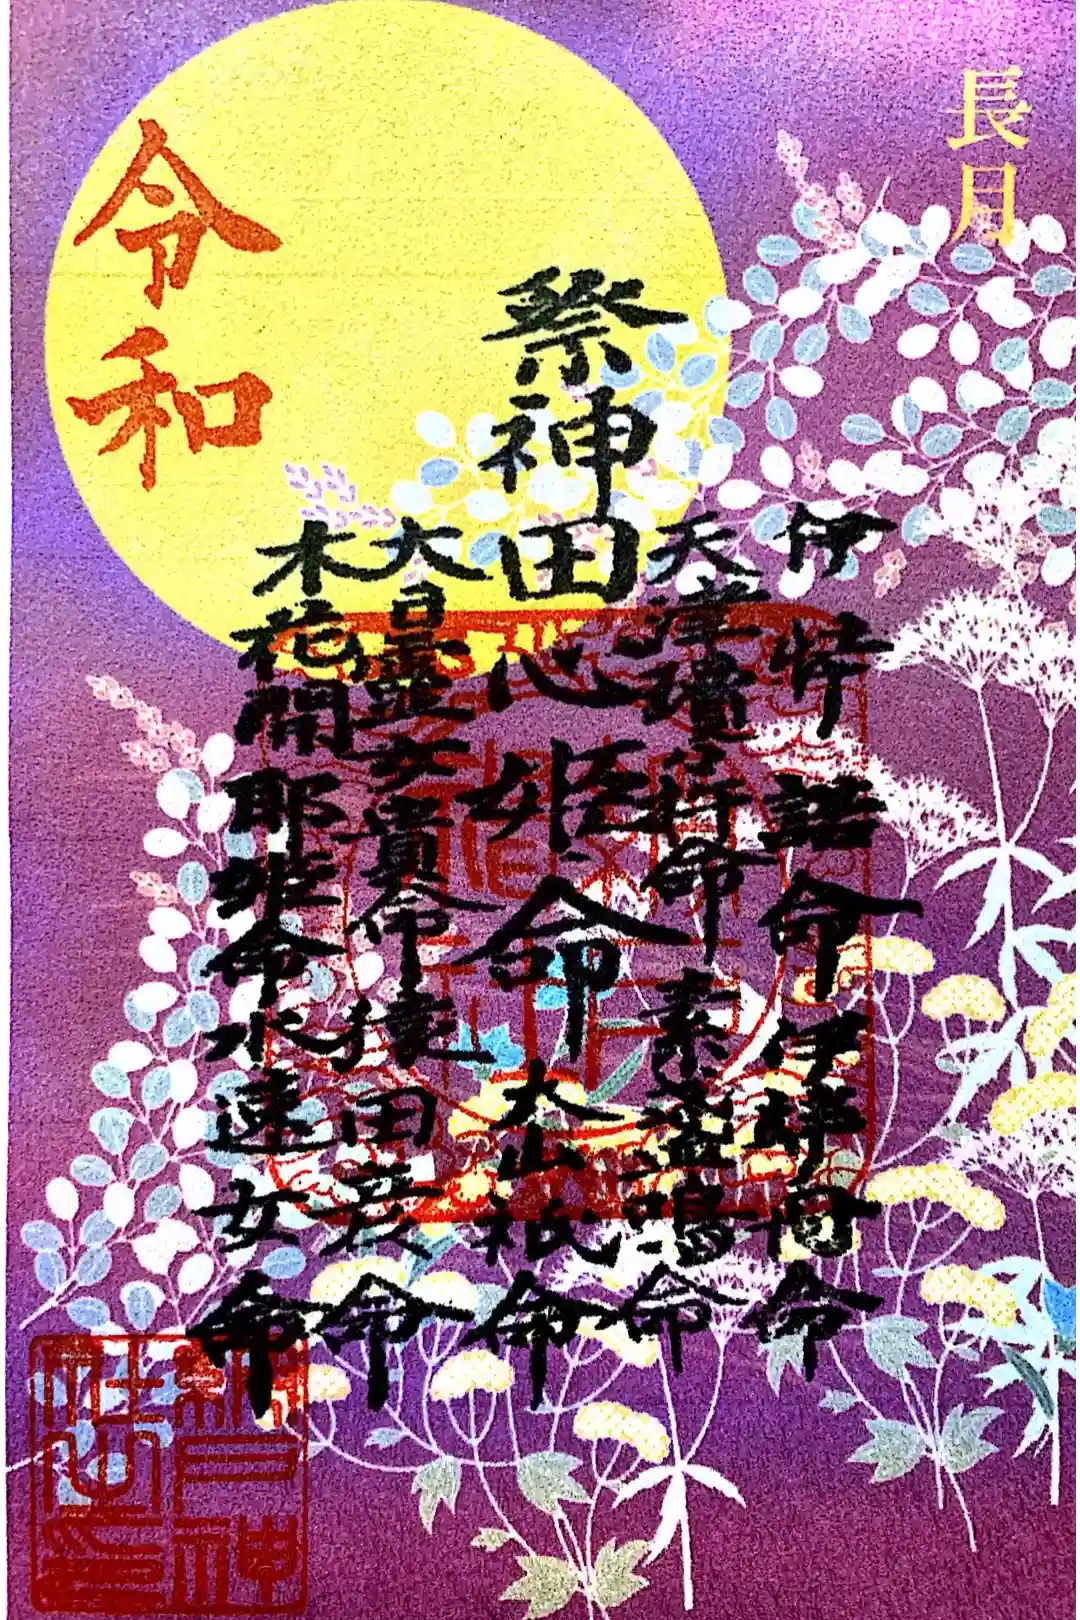 長月
伊弉諾命 伊弉冊命
天津瓊杵命 素盞鳴命
祭神 田心姫命 大山祇命
大日霊女貴命 猿田彦命
木花開耶姫命 水速女命
令和
網戸神
社之印